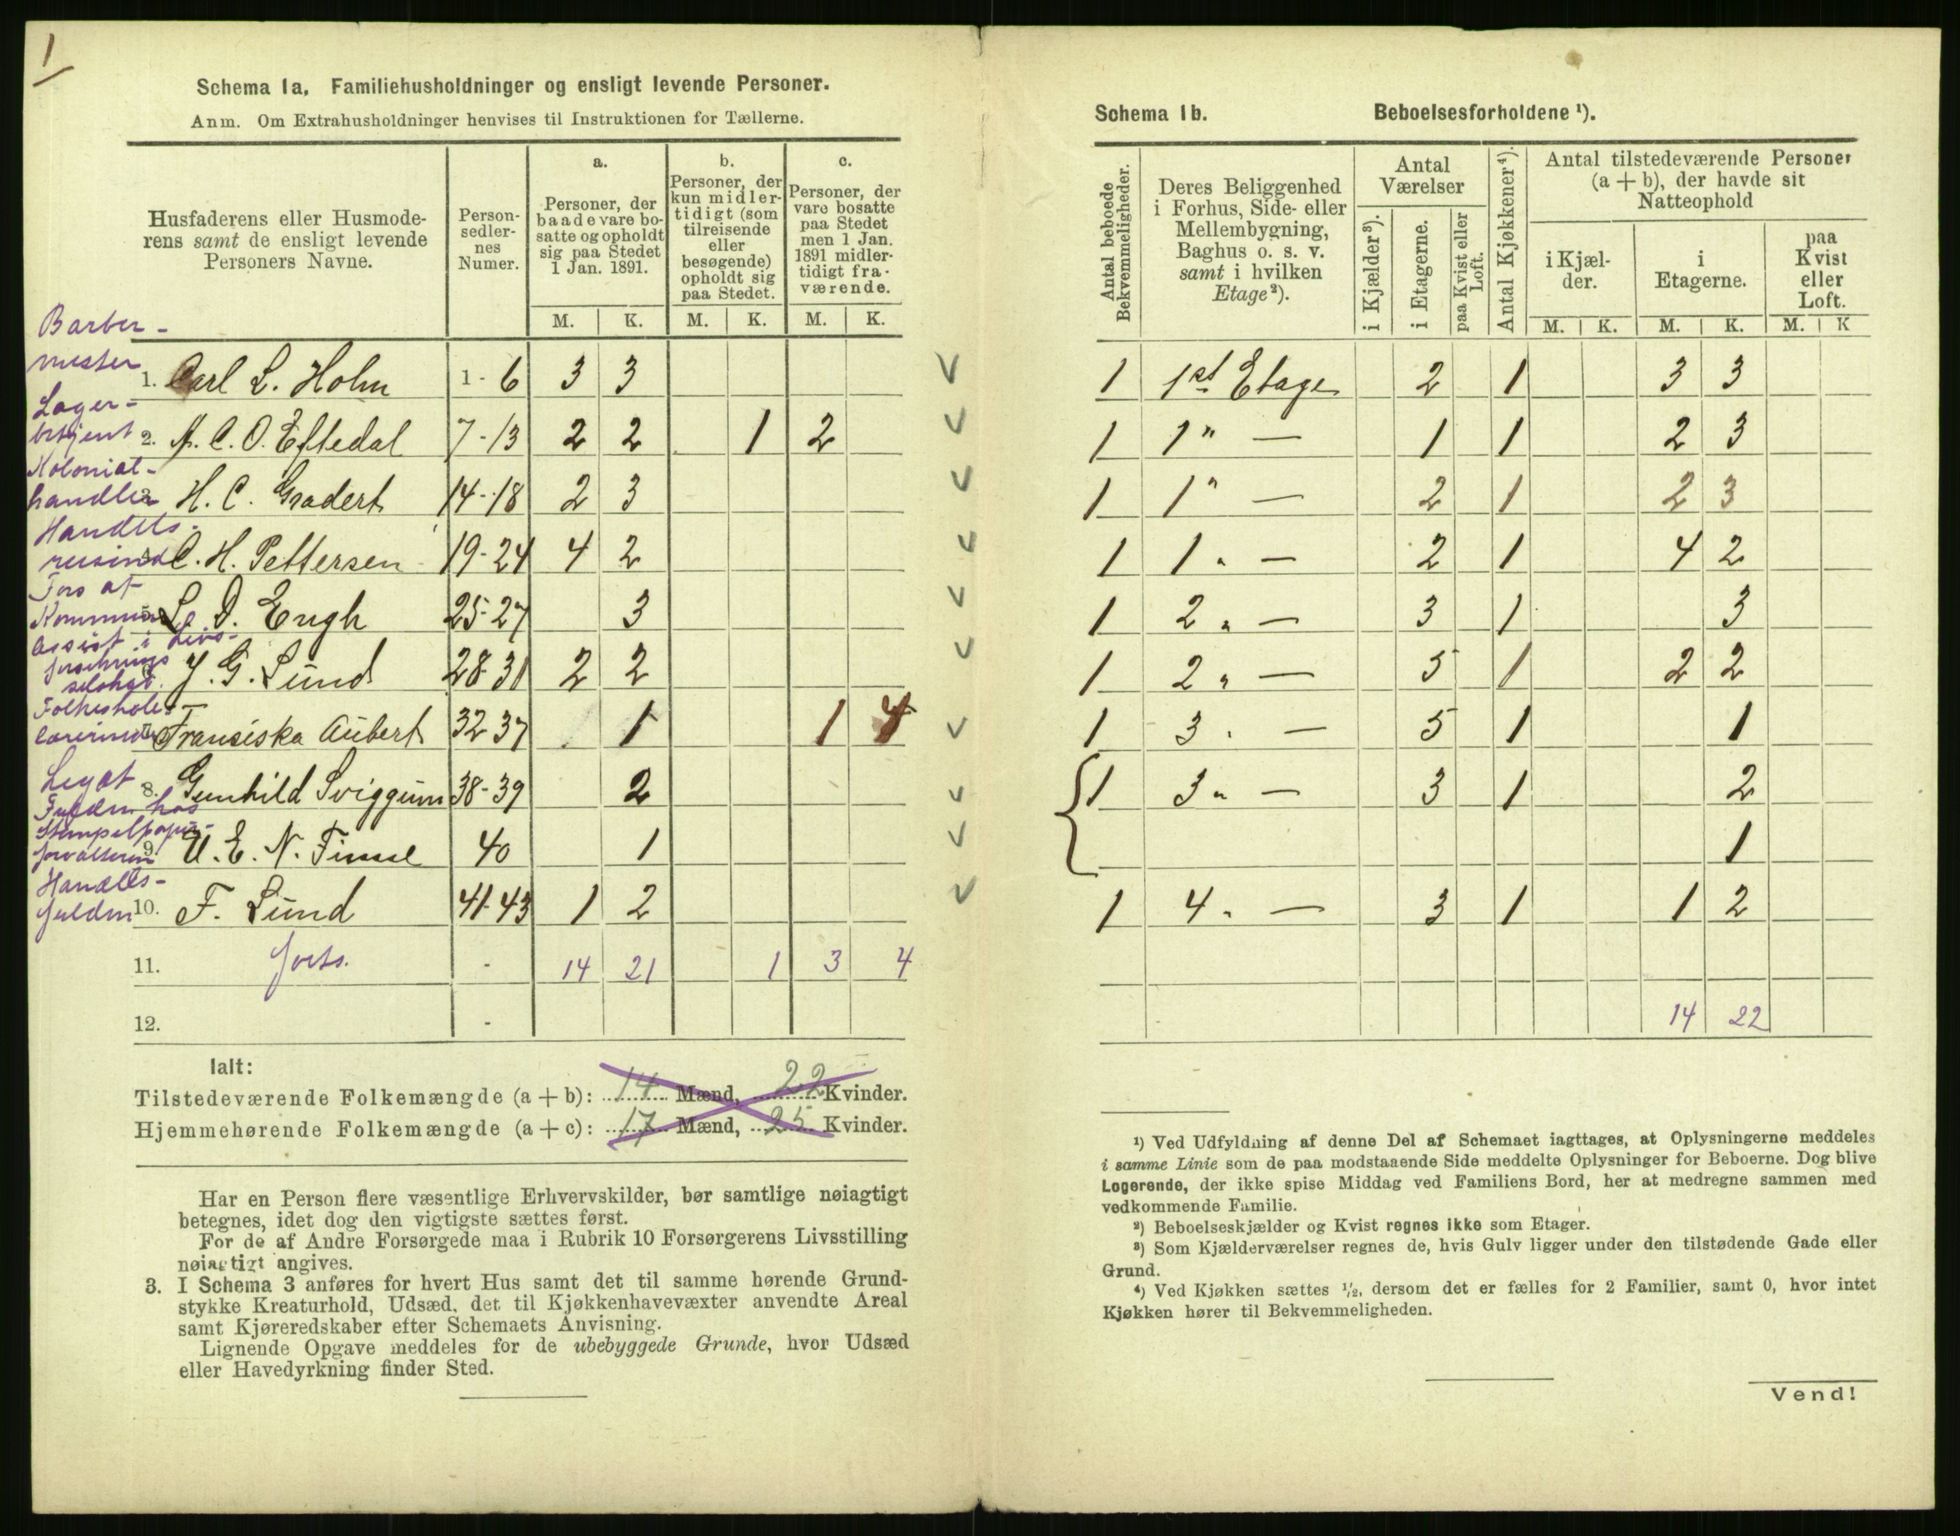 1
Schema 1a. Familiehusholdninger og ensligt levende Personer.
Anm. Om Extrahusholdninger henvises til Instruktionen for Tællerne.
Husfaderens eller Husmoderens samt de ensligt levende Personers Navne.
Person-sedlernes Numer.
a. Personer, der baade vare bosatte og opholdt sig paa Stedet 1 Jan. 1891.
b. Personer, der kun midlertidigt (som tilreisende eller besøgende) opholdt sig paa Stedet.
c. Personer, der vare bosatte paa Stedet men 1 Jan. 1891 midlertidigt fraværende.
M. K. M. K. M. K.
Barber-
mester
1. Carl L. Holm 1-6 3 3
Lager-
betjent
2. A. C. O. Eftedal 7-13 2 2 1 2
Kolonial-
handler
3. H. C. Gradert 14-18 2 3
Handels-
reisende
4. C. H. Pettersen 19-24 4 2
Fors af
Kommune
5. L. D. Engh 25-27 3
Assist i Livs-
forsikrings
selskab.
6. J. G. Lund 28-31 2 2
Folkeskole-
lærerinde
7. Fransiska Aubert 32-37 1 1 4
Legat
8. Gunhild Sviggum 38-39 2
Fuldm. hos
Stempelpapir-
forvalteren
9. U. E. N. Finne 40 1
Handels-
fuldm
10. F. Lund 41-43 1 2
11. forts. - 14 21 1 3 4
12. -
Ialt:
Tilstedeværende Folkemængde (a + b): 14 Mænd, 22 Kvinder.
Hjemmehørende Folkemængde (a + c): 17 Mænd, 25 Kvinder.
Har en Person flere væsentlige Erhvervskilder, bør samtlige nøiagtigt
betegnes, idet dog den vigtigste sættes først.
For de af Andre Forsørgede maa i Rubrik 10 Forsørgerens Livsstilling
nøiagtigt angives.
3. I Schema 3 anføres for hvert Hus samt det til samme hørende Grund-
stykke Kreaturhold, Udsæd, det til Kjøkkenhavevæxter anvendte Areal
samt Kjøreredskaber efter Schemaets Anvisning.
Lignende Opgave meddeles for de ubebyggede Grunde, hvor Udsæd
eller Havedyrkning finder Sted.
Schema 1b. Beboelsesforholdene ¹).
Antal beboede Bekvemmeligheder.
Deres Beliggenhed i Forhus, Side- eller Mellembygning, Baghus o. s. v. samt i hvilken Etage²).
Antal Værelser
i Kjælder³).
i Etagerne.
paa Kvist eller Loft.
Antal Kjøkkener⁴).
Antal tilstedeværende Personer (a + b), der havde sit Natteophold
i Kjælder.
i Etagerne.
paa Kvist eller Loft.
M. K. M. K. M. K
1 1st Etage 2 1 3 3
1 1 " — 1 1 2 3
1 1 " — 2 1 2 3
1 1 " — 2 1 4 2
1 2 " — 3 1 3
1 2 " — 5 1 2 2
1 3 " — 5 1 1
1 3 " — 3 1 2
1
1 4 " — 3 1 1 2
14 22
¹) Ved Udfyldning af denne Del af Schemaet iagttages, at Oplysningerne meddeles
i samme Linie som de paa modstaaende Side meddelte Oplysninger for Beboerne. Dog blive
Logerende, der ikke spise Middag ved Familiens Bord, her at medregne sammen med
vedkommende Familie.
²) Beboelseskjælder og Kvist regnes ikke som Etager.
³) Som Kjælderværelser regnes de, hvis Gulv ligger under den tilstødende Gade eller
Grund.
⁴) Ved Kjøkken sættes ½, dersom det er fælles for 2 Familier, samt 0, hvor intet
Kjøkken hører til Bekvemmeligheden.
Vend!